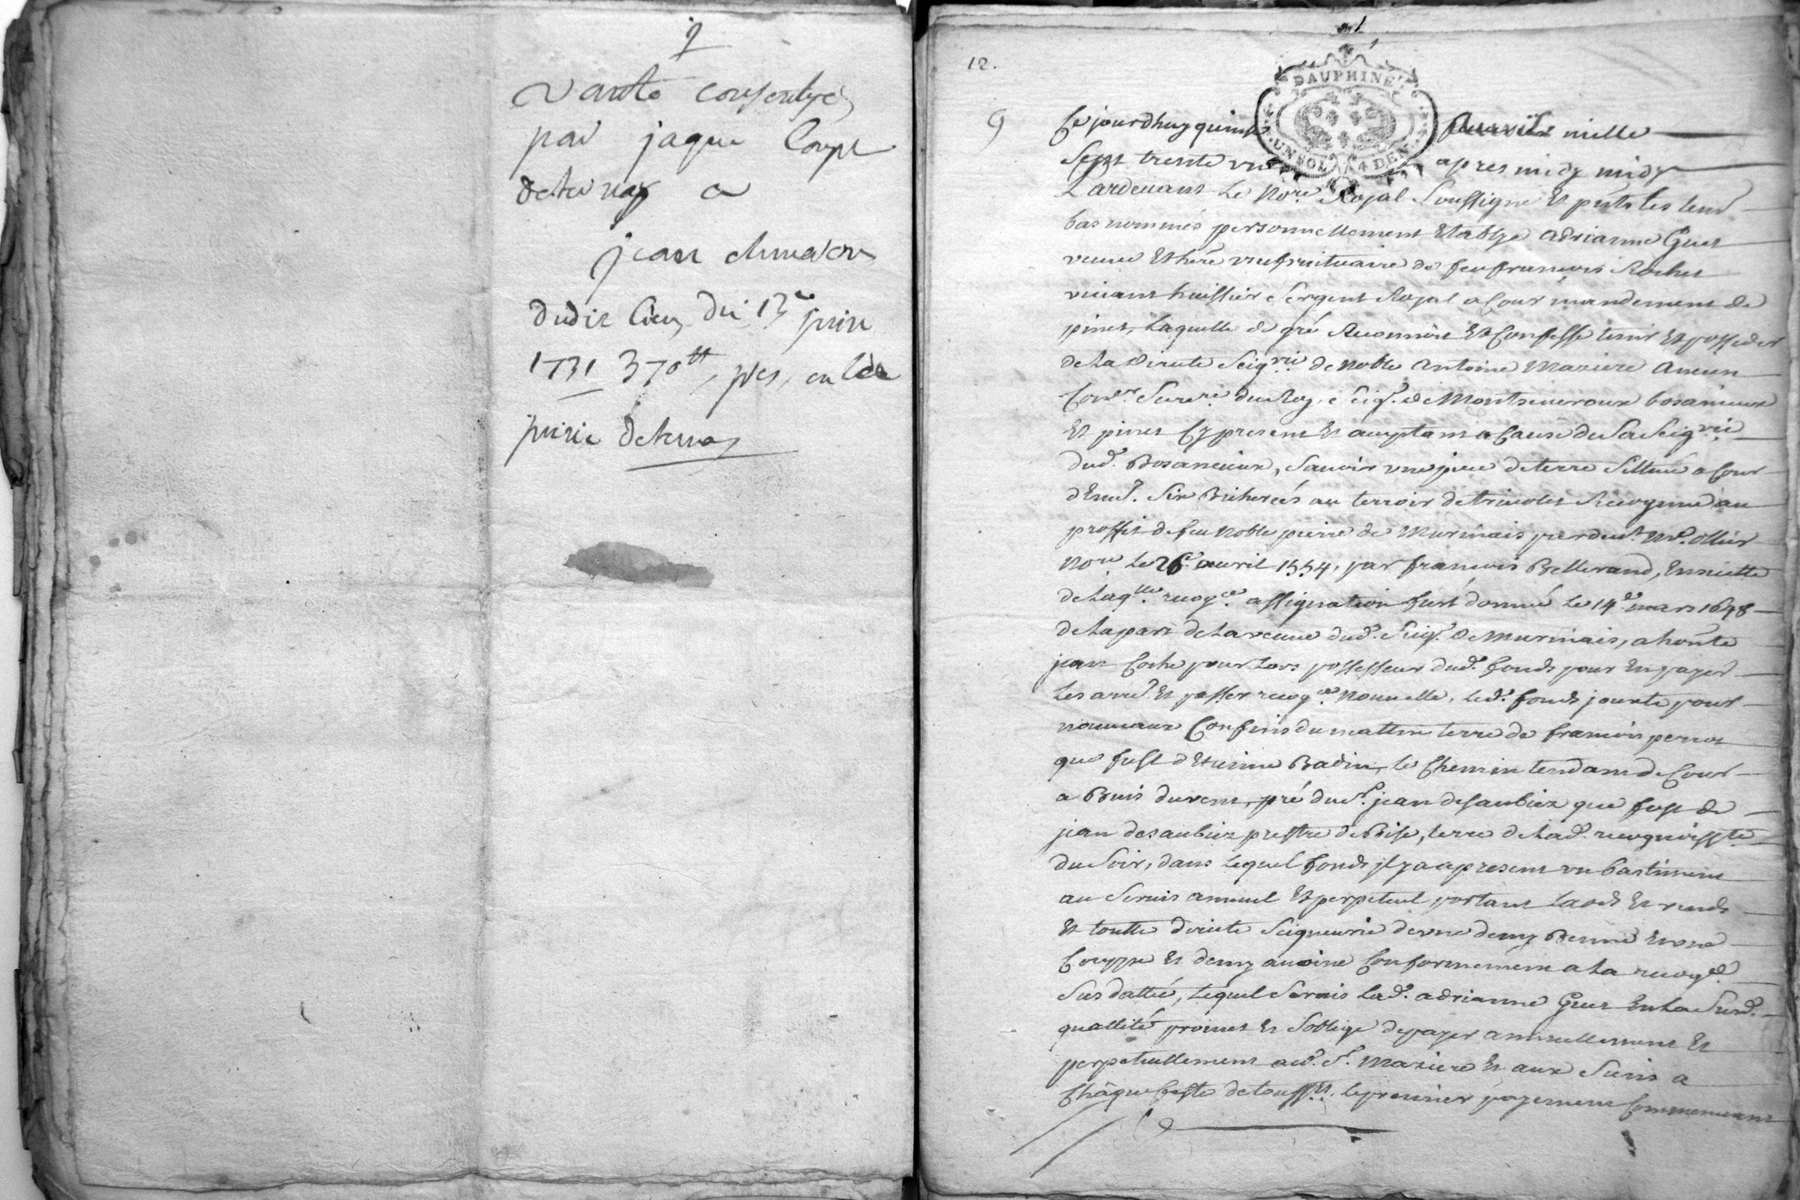 9
vante consentye
par jaque Coupt
de ternay a
jean chmaron
dudit lieu du 13e juin
1731 370tt, pres, en lad
prisie de ternay
1
12.
DAUPHINÉ
UN SOL 4 DEN.
9
Ce jourdhuy quinze avril mille
Sept trente un apres midy midy
Pardevant Le nore. Royal Soussigne Et pnts les tem.
bas nommés personnellement Etablye adrianne Guer
veuve Et here usufruituaire de feu francois Rochet
vivant huissier e Sergent Royal a Cour mandement de
pinet, Laquelle de gré Reconnoit Et Confesse tenir Et posseder
de La directe Seigrie de noble antoine Maziere ancien
Conr. Secrere. du Roy, e Seigr. de Montseveroux bosancieux
Et pinet Cy present Et acceptant a Cause de Sa Seigrie
dud. Bosancieux, Savoir une piece de terre Scittuée a Cour
denv. Six Bicherées au terroir de trivolet Recogneue au
proffit de feu noble pierre de Murinais par devt. Me. Ollier
Nore. le 26e. avril 1554, par francois Bellerand, Ensuitte
de Laqlle. recogce. assignation fust donnée Le 14e. mars 1648
de La part de La veuve dud. Seigr. de Murinais, a honte
jean Coche pour Lors possesseur dud. fonds pour En payer
Les arre. Et passer recogce. nouvelle, led. fonds jouxte pour
nouveaux Confins du mattin terre de francois perrot
que fust d'Etienne Badin, le Chemin tendant de Cour
a Buis du vent, pré du Sr. jean desaubiez que fust de
jean desaubiez prestre de Bise, terre de Lad. recognoisste.
du Soir, dans Lequel fonds il y a a present un bastiment
au Servis annuel Et perpetuel portant Laods Et vends
Et toutte directe Seigneurie d'une demy Benne Et une
Couppe Et demy avoine Conformement a La recoge.
Sus dattée, Lequel Servis Lad. adrianne Guer En La Susd.
quallité promet Et S'oblige de payer annuellement Et
perpetuellement aud. Sr. Maziere Et aux Siens a
Chaque feste de Toussts. le premier payement Commencant